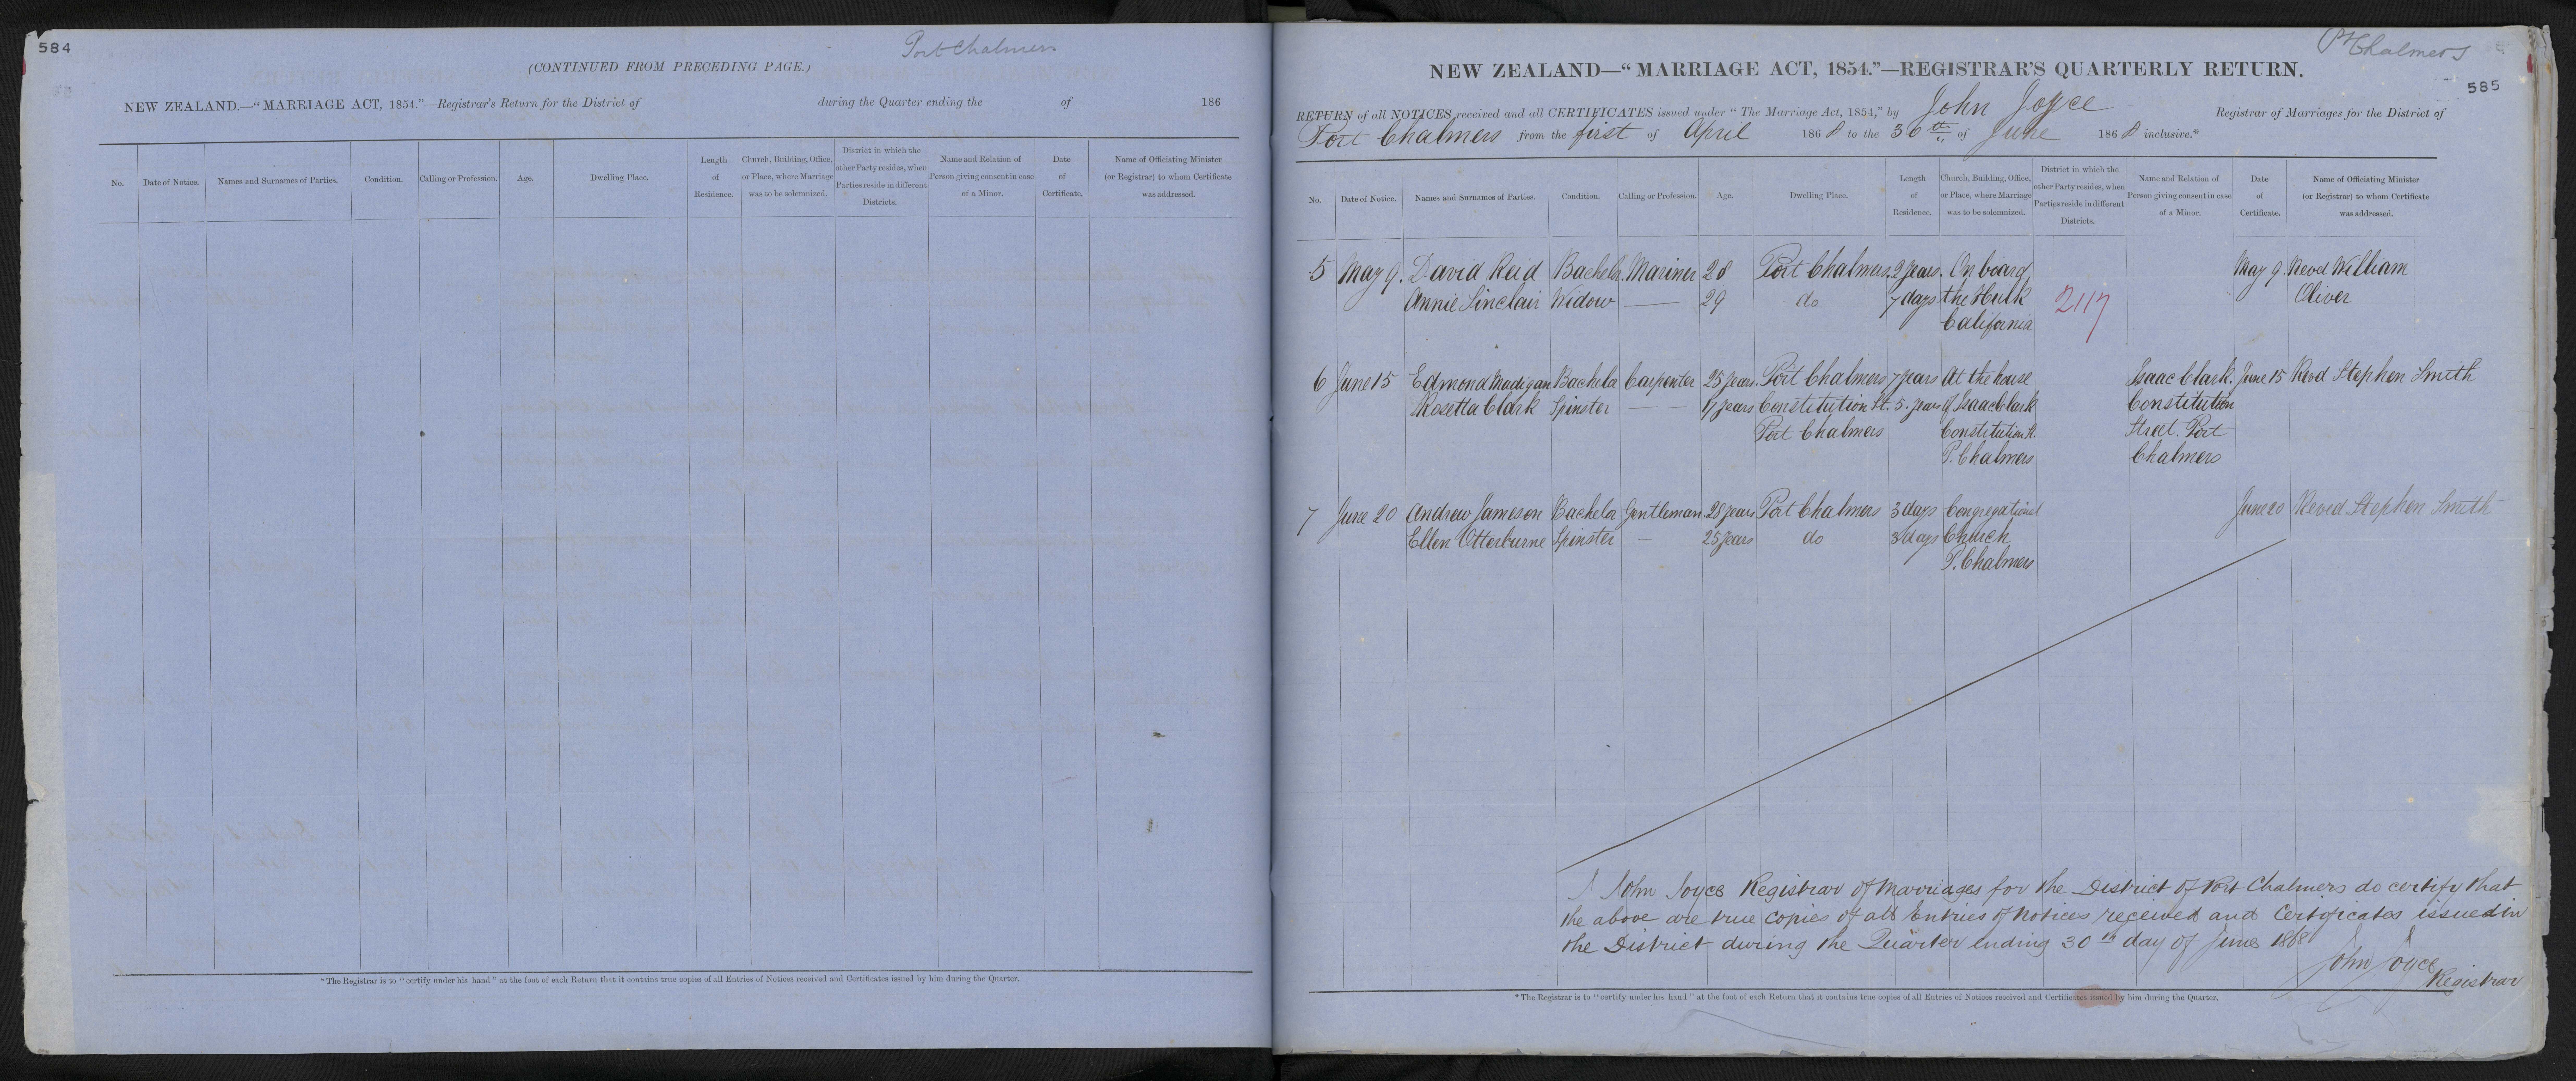 584
Port Chalmers
(CONTINUED FROM PRECEDING PAGE.)
NEW ZEALAND.—“MARRIAGE ACT, 1854.”—Registrar's Return for the District of during the Quarter ending the of 186
No. Date of Notice. Names and Surnames of Parties. Condition. Calling or Profession. Age. Dwelling Place. Length of Residence. Church, Building, Office, or Place, where Marriage was to be solemnized. District in which the other Party resides, when Parties reside in different Districts. Name and Relation of Person giving consent in case of a Minor. Date of Certificate. Name of Officiating Minister (or Registrar) to whom Certificate was addressed.
* The Registrar is to “certify under his hand” at the foot of each Return that it contains true copies of all Entries of Notices received and Certificates issued by him during the Quarter.
Pt Chalmers
585
NEW ZEALAND—“MARRIAGE ACT, 1854.”—REGISTRAR'S QUARTERLY RETURN.
RETURN of all NOTICES received and all CERTIFICATES issued under “The Marriage Act, 1854,” by John Joyce Registrar of Marriages for the District of
Port Chalmers from the first of April 1868 to the 30th of June 1868 inclusive.*
No. Date of Notice. Names and Surnames of Parties. Condition. Calling or Profession. Age. Dwelling Place. Length of Residence. Church, Building, Office, or Place, where Marriage was to be solemnized. District in which the other Party resides, when Parties reside in different Districts. Name and Relation of Person giving consent in case of a Minor. Date of Certificate. Name of Officiating Minister (or Registrar) to whom Certificate was addressed.
5 May 9. David Reid Bachelr. Mariner 28 Port Chalmers. 2 years. On board May 9. Revd William
Annie Sinclair Widow — 29 do 7 days the Hulk 2117 Oliver
California
6 June 15 Edmond Madigan Bachelor Carpenter 25 years. Port Chalmers 7 years At the house Isaac Clark. June 15 Revd Stephen Smith
Rosetta Clark Spinster — — 17 years Constitution St. 5. years of Isaac Clark Constitution
Port Chalmers Constitution St. Street. Port
P. Chalmers Chalmers
7 June 20 Andrew Jameson Bachelor Gentleman 28 years Port Chalmers 3 days Congregational June 20 Revd Stephen Smith
Ellen Otterburne Spinster — 25 years do 3 days Church
P. Chalmers
I John Joyce Registrar of Marriages for the District of Port Chalmers do certify that
the above are true copies of all Entries of Notices received and Certificates issued in
the District during the Quarter ending 30th day of June 1868
John Joyce
Registrar
* The Registrar is to “certify under his hand” at the foot of each Return that it contains true copies of all Entries of Notices received and Certificates issued by him during the Quarter.